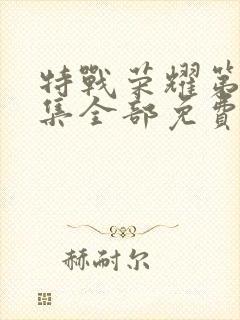 特戰荣耀第
集全部免費
赫耐尔